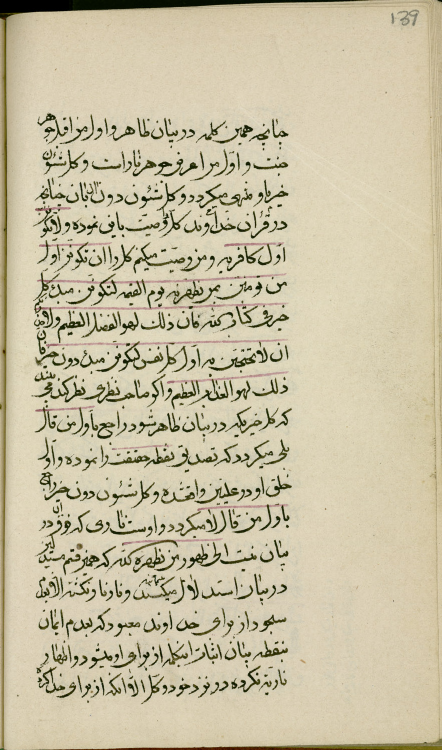 139
چنانچه همین کلمه در بیان ظاهر و اول من اقبل جوهر
جنت و اول من اعرض جوهر نار است و کل شئون
خیر باو منتهی میگردد و کل شئون دون ان بان چنانچه
در قرآن خداوند کل را وصیت باین نموده ولا تکونن
اول کافر به و من وصیت میکنم کل را ان تکونن اول
من یؤمن بمن یظهره یوم القیمة لتکونن مبدء کل
خیر فی کتاب الله فان ذلک لهو الفضل العظیم ولا
ان لا تحتجبن به اول کل نفس لتکونن مبدء دون خیر فان
ذلک لهو العدل العظیم و اگر صاحب نظری نظر کند می بیند
که کل خیریکه در بیان ظاهر شود راجع باول من قال
بلی میگردد که تصدیق نقطه حقیقت را نموده و اول
خلق او در علیین واقع شده و کل شئون دون خیر راجع
باول من قال لا میگردد و اوست ناری که فوق ان در
بیان نیست الی ظهور من یظهره الله که همین قسم مستدل
در بیان استدلال میکنند و نار نار و نکند الا بود
سجود از برای خداوند معبود که بعدم ایمان
بنقطه بیان اثبات اینکلمه از برای او میشود و اظهار
ناریه نکرده در نزد خود و کل الا آنکه از برای خدا کرده